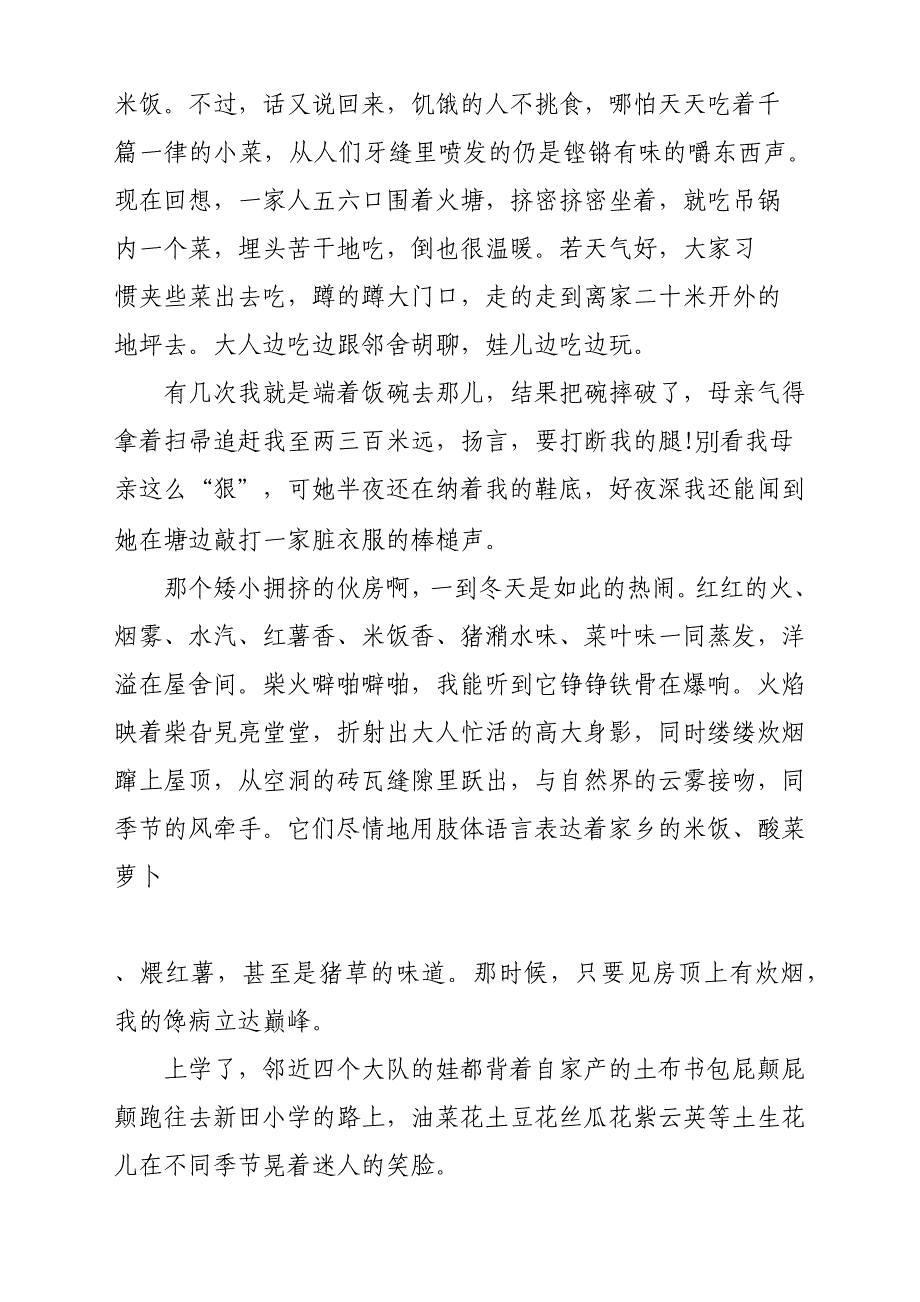 米饭。不过，话又说回来，饥饿的人不挑食，哪怕天天吃着千
篇一律的小菜，从人们牙缝里喷发的仍是铿锵有味的嚼东西声。
现在回想，一家人五六口围着火塘，挤密挤密坐着，就吃吊锅
内一个菜，埋头苦干地吃，倒也很温暖。若天气好，大家习
惯夹些菜出去吃，蹲的蹲大门口，走的走到离家二十米开外的
地坪去。大人边吃边跟邻舍胡聊，娃儿边吃边玩。
有几次我就是端着饭碗去那儿，结果把碗摔破了，母亲气得
拿着扫帚追赶我至两三百米远，扬言，要打断我的腿!别看我母
亲这么“狠”，可她半夜还在纳着我的鞋底，好夜深我还能闻到
她在塘边敲打一家脏衣服的棒槌声。
那个矮小拥挤的伙房啊，一到冬天是如此的热闹。红红的火、
烟雾、水汽、红薯香、米饭香、猪潲水味、菜叶味一同蒸发，洋
溢在屋舍间。柴火噼啪噼啪，我能听到它铮铮铁骨在爆响。火焰
映着柴旮旯亮堂堂，折射出大人忙活的高大身影，同时缕缕炊烟
蹿上屋顶，从空洞的砖瓦缝隙里跃出，与自然界的云雾接吻，同
季节的风牵手。它们尽情地用肢体语言表达着家乡的米饭、酸菜
萝卜
、煨红薯，甚至是猪草的味道。那时候，只要见房顶上有炊烟，
我的馋病立达巅峰。
上学了，邻近四个大队的娃都背着自家产的土布书包屁颠屁
颠跑往去新田小学的路上，油菜花土豆花丝瓜花紫云英等土生花
儿在不同季节晃着迷人的笑脸。